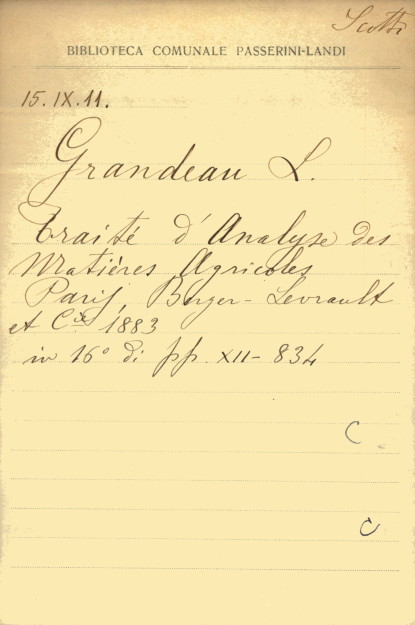 Scotti
BIBLIOTECA COMUNALE PASSERINI-LANDI
15.IX.11.
Grandeau L.
Traité d'Analyse des
Matières Agricoles
Paris, Berger-Levrault
et Cie, 1883
in 16° di pp. XII-834
C
C